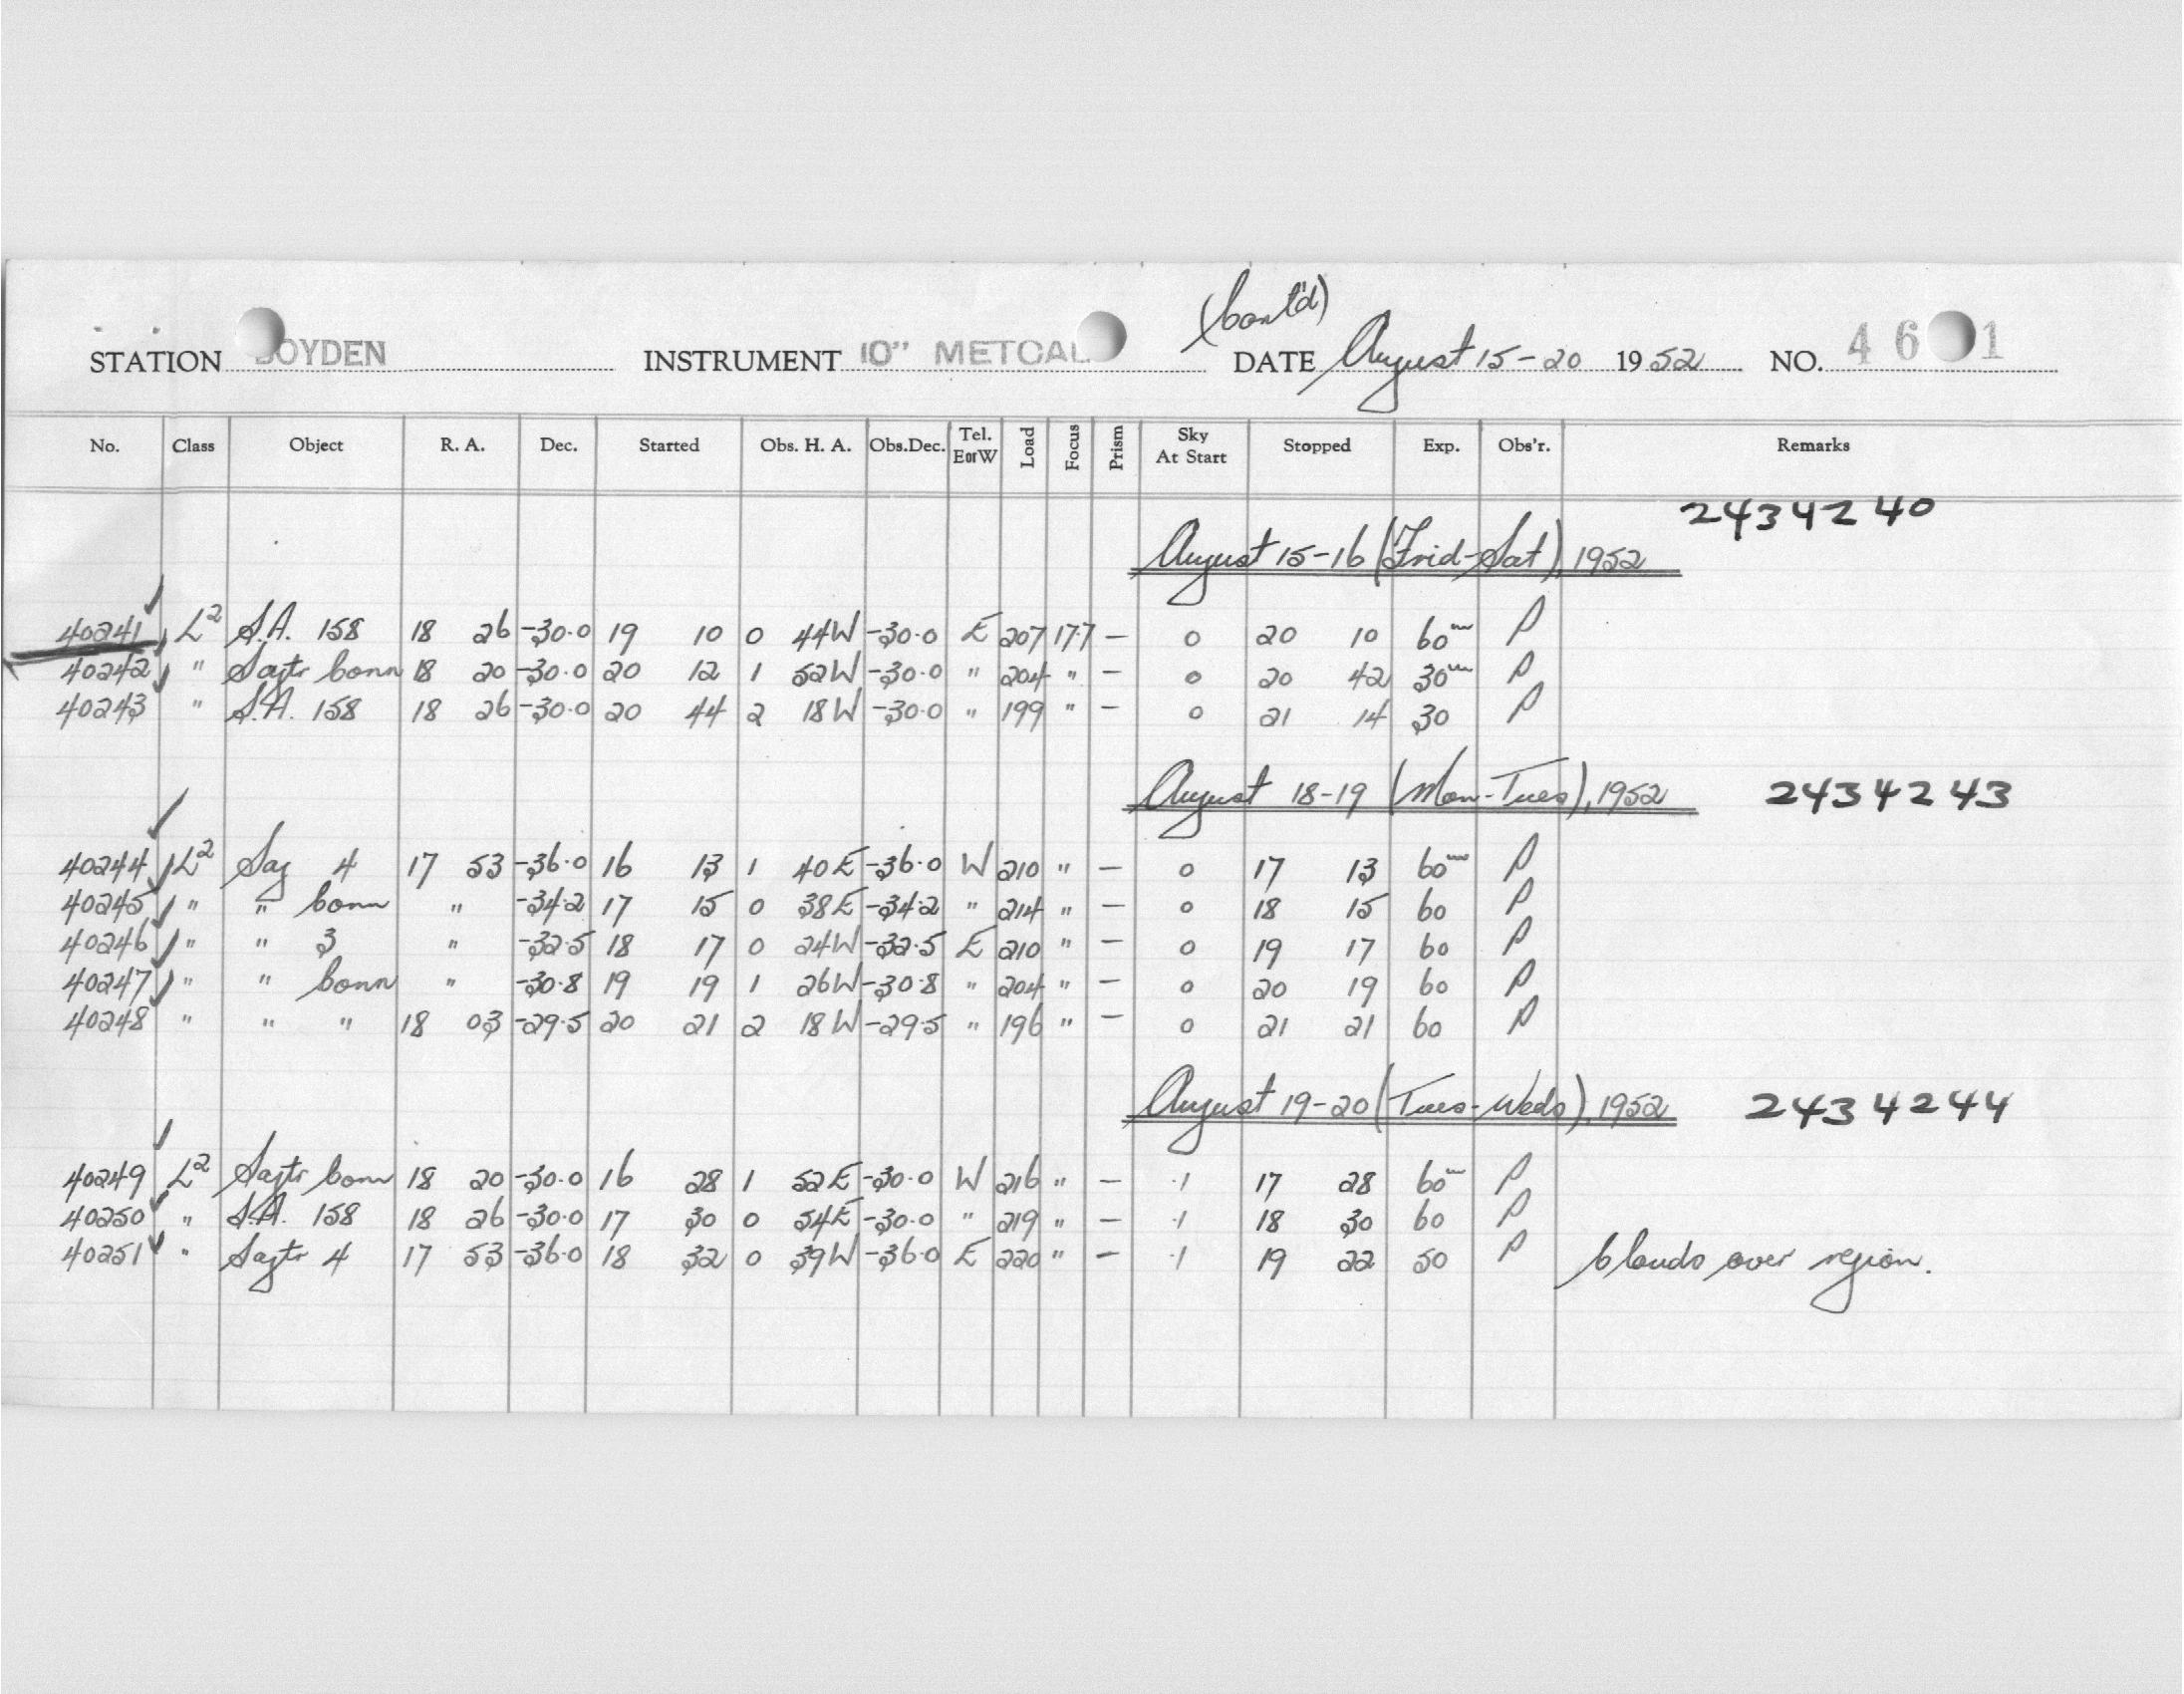 (Cont'd)
STATION BOYDEN INSTRUMENT 10" METCAL DATE August 15-20 1952 NO. 46 1
No. Class Object R. A. Dec. Started Obs. H. A. Obs.Dec. Tel. EorW Load Focus Prism Sky At Start Stopped Exp. Obs'r. Remarks
2434240
August 15-16 (Frid-Sat), 1952
40241 L² S.A. 158 18 26 -30.0 19 10 0 44W -30.0 E 207 17.7 — 0 20 10 60m P
40242 " Sagtr Conn 18 20 -30.0 20 12 1 52W -30.0 " 204 " — 0 20 42 30m P
40243 " S.A. 158 18 26 -30.0 20 44 2 18W -30.0 " 199 " — 0 21 14 30 P
August 18-19 (Mon-Tues), 1952 2434243
40244 L² Sag 4 17 53 -36.0 16 13 1 40E -36.0 W 210 " — 0 17 13 60m P
40245 " " Conn " -34.2 17 15 0 38E -34.2 " 214 " — 0 18 15 60 P
40246 " " 3 " -32.5 18 17 0 24W -32.5 E 210 " — 0 19 17 60 P
40247 " " Conn " -30.8 19 19 1 26W -30.8 " 204 " — 0 20 19 60 P
40248 " " " 18 03 -29.5 20 21 2 18W -29.5 " 196 " — 0 21 21 60 P
August 19-20 (Tues-Weds), 1952 2434244
40249 L² Sagtr Conn 18 20 -30.0 16 28 1 52E -30.0 W 216 " — .1 17 28 60m P
40250 " S.A. 158 18 26 -30.0 17 30 0 54E -30.0 " 219 " — .1 18 30 60 P
40251 " Sagtr 4 17 53 -36.0 18 32 0 39W -36.0 E 220 " — .1 19 22 50 P Clouds over region.